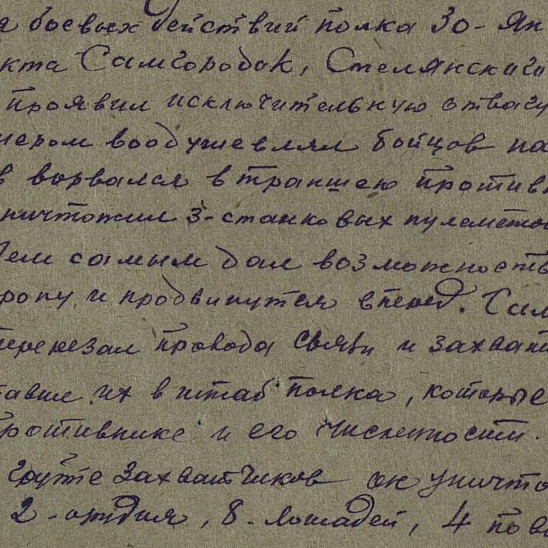 а боевых действий полка 30-Ян
кта Самгородок, Стелянский
проявил исключительную отвагу
мером воодушевлял бойцов на
в ворвался в траншею против
уничтожил 3-станковых пулемето
Тем самым дал возможность
рону и продвинутся вперед. Сам
перерезал провода связи и захват
тавил их в штаб полка, которые
противнике и его численности.
группе захватчиков он уничто
2-орудия, 8-лошадей, 4 пов